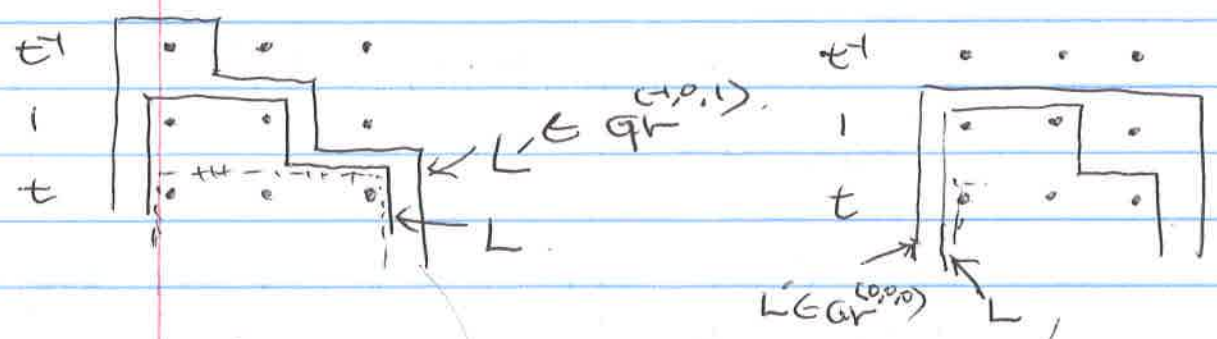 t⁻¹
1
t
L' ∈ Gr^(-1,0,1).
L
t⁻¹
1
t
L' ∈ Gr^(0,0,0)
L